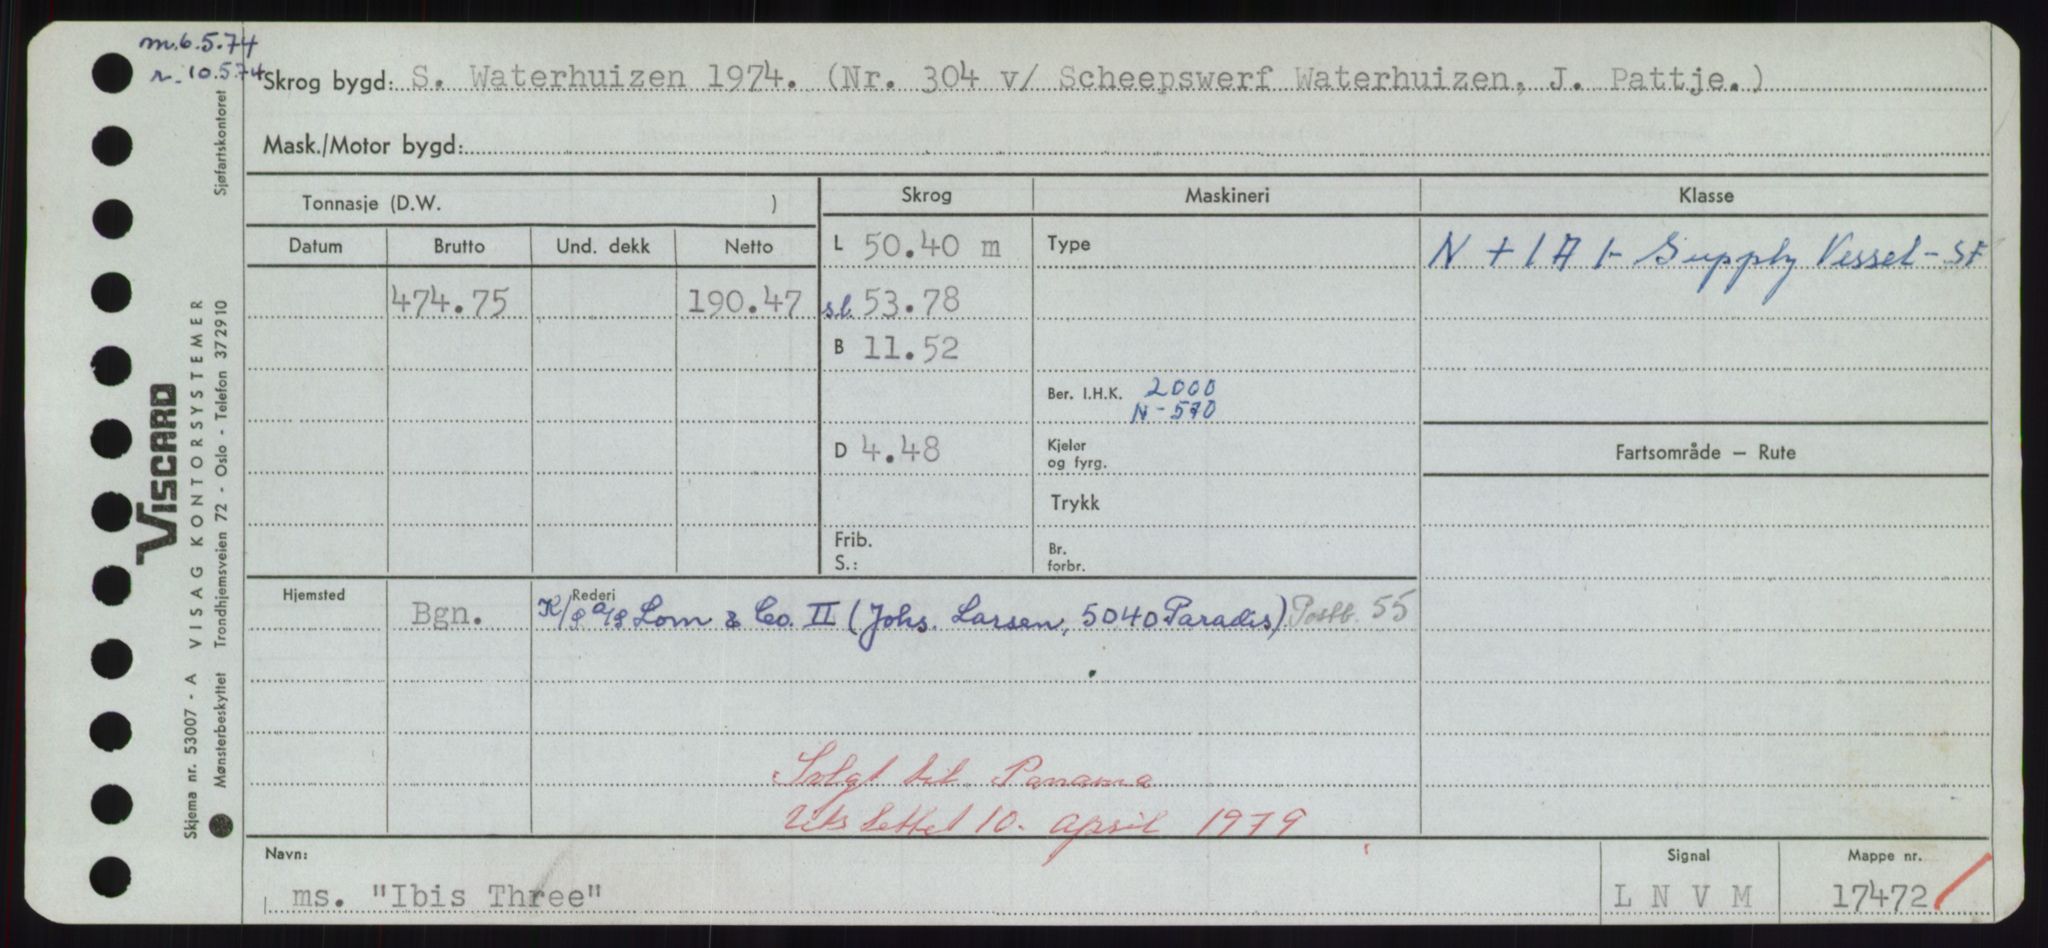 m. 6.5.74
r. 10.5.74
Skrog bygd: S. Waterhuizen 1974. (Nr. 304 v/ Scheepswerf Waterhuizen, J. Pattje.)
Mask./Motor bygd:
Tonnasje (D.W. )
Skrog
Maskineri
Klasse
Datum Brutto Und. dekk Netto
L 50.40 m
Type
N + 1 A 1 - Supply Vessel - SF
474.75 190.47
s.l. 53.78
B 11.52
Ber. I.H.K. 2000
N - 570
D 4.48
Kjeler
og fyrg.
Fartsområde — Rute
Trykk
Frib.
S.:
Br.
forbr.
Hjemsted
Rederi
Bgn. K/S A/S Lom & Co. II (Johs. Larsen, 5040 Paradis) Postb. 55
Solgt til Panama
Utslettet 10. april 1979
Navn:
Signal
Mappe nr.
ms. "Ibis Three"
L N V M
17472
Skjema nr. 53007 - A VISAG KONTORSYSTEMER Sjøfartskontoret
Mønsterbeskyttet Trondhjemsveien 72 - Oslo - Telefon 372910
VISCARD